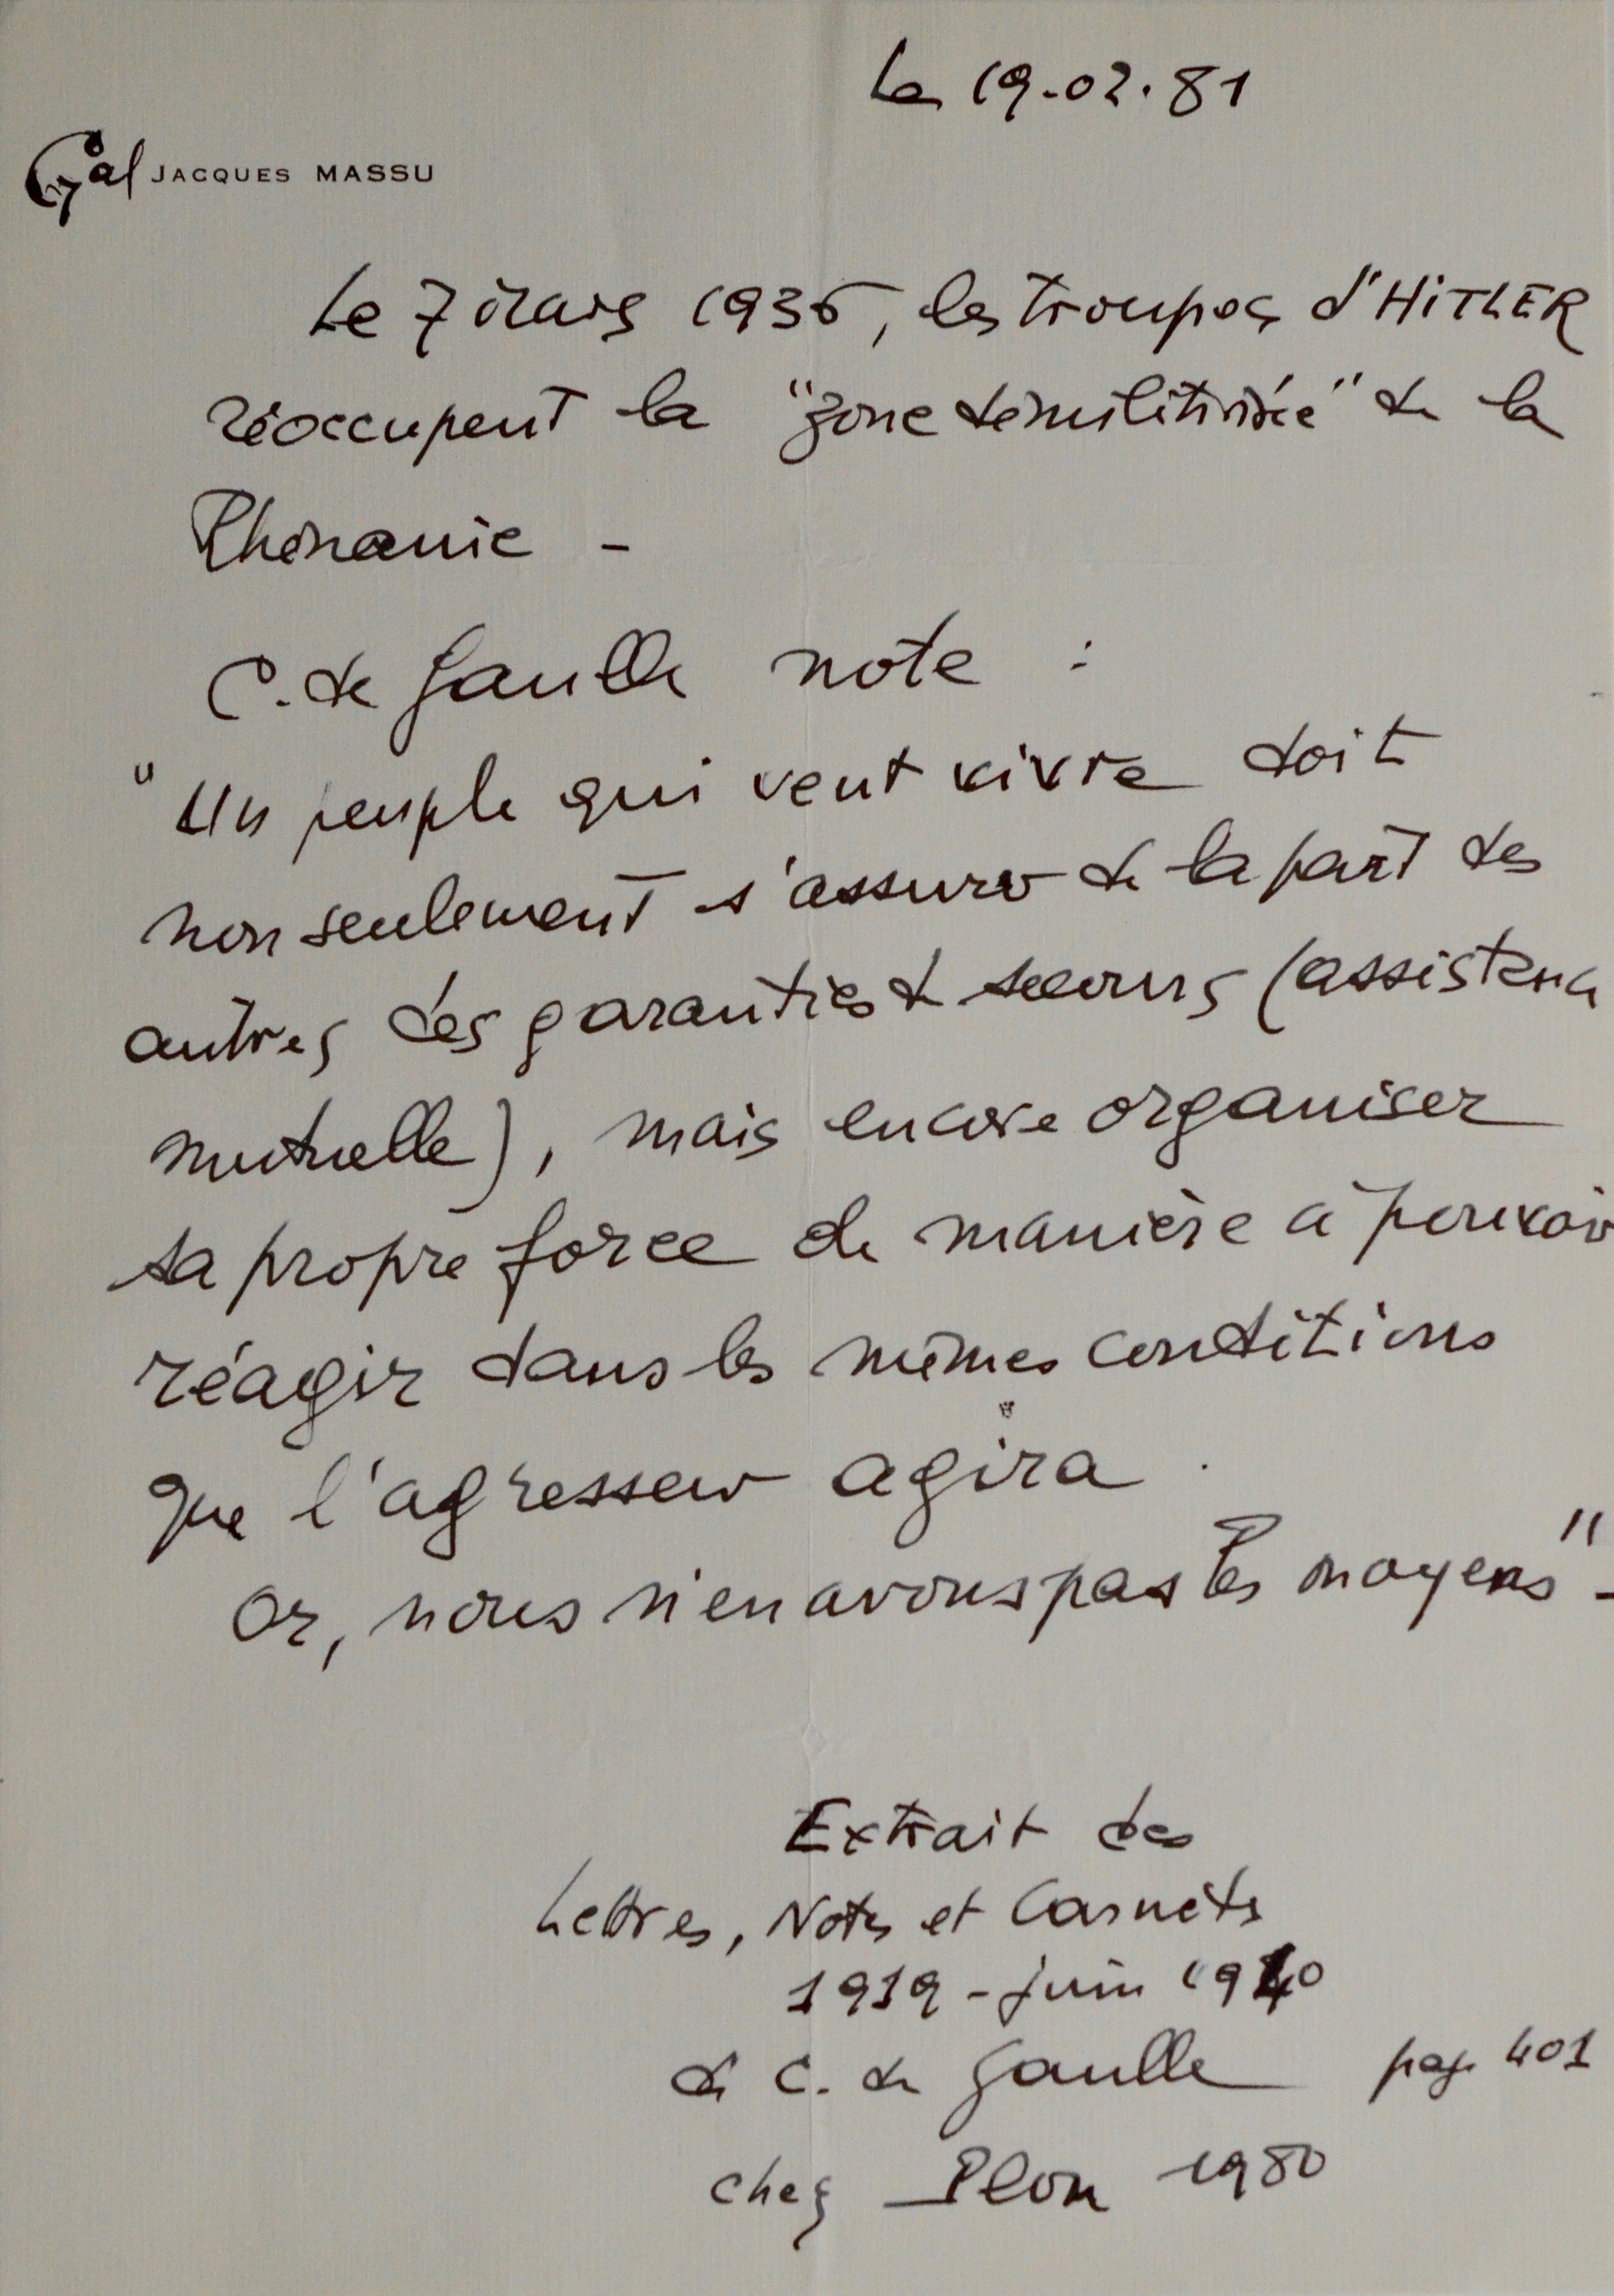 Le 19-02.81
Gal JACQUES MASSU
Le 7 Mars 1936, les troupes d'HiTLER
réoccupent la "zone démilitarisée" de la
Rhénanie -
C. de Gaulle note :
"Un peuple qui veut vivre doit
non seulement s'assurer de la part des
autres des garanties de secours (assistance
mutuelle), mais encore organiser
sa propre force de manière à pouvoir
réagir dans les mêmes conditions
que l'agresseur agira.
Or, nous n'en avons pas les moyens" -
Extrait des
Lettres, Notes et Carnets
1919 - juin 1940
de C. de Gaulle page 401
chez Plon 1980